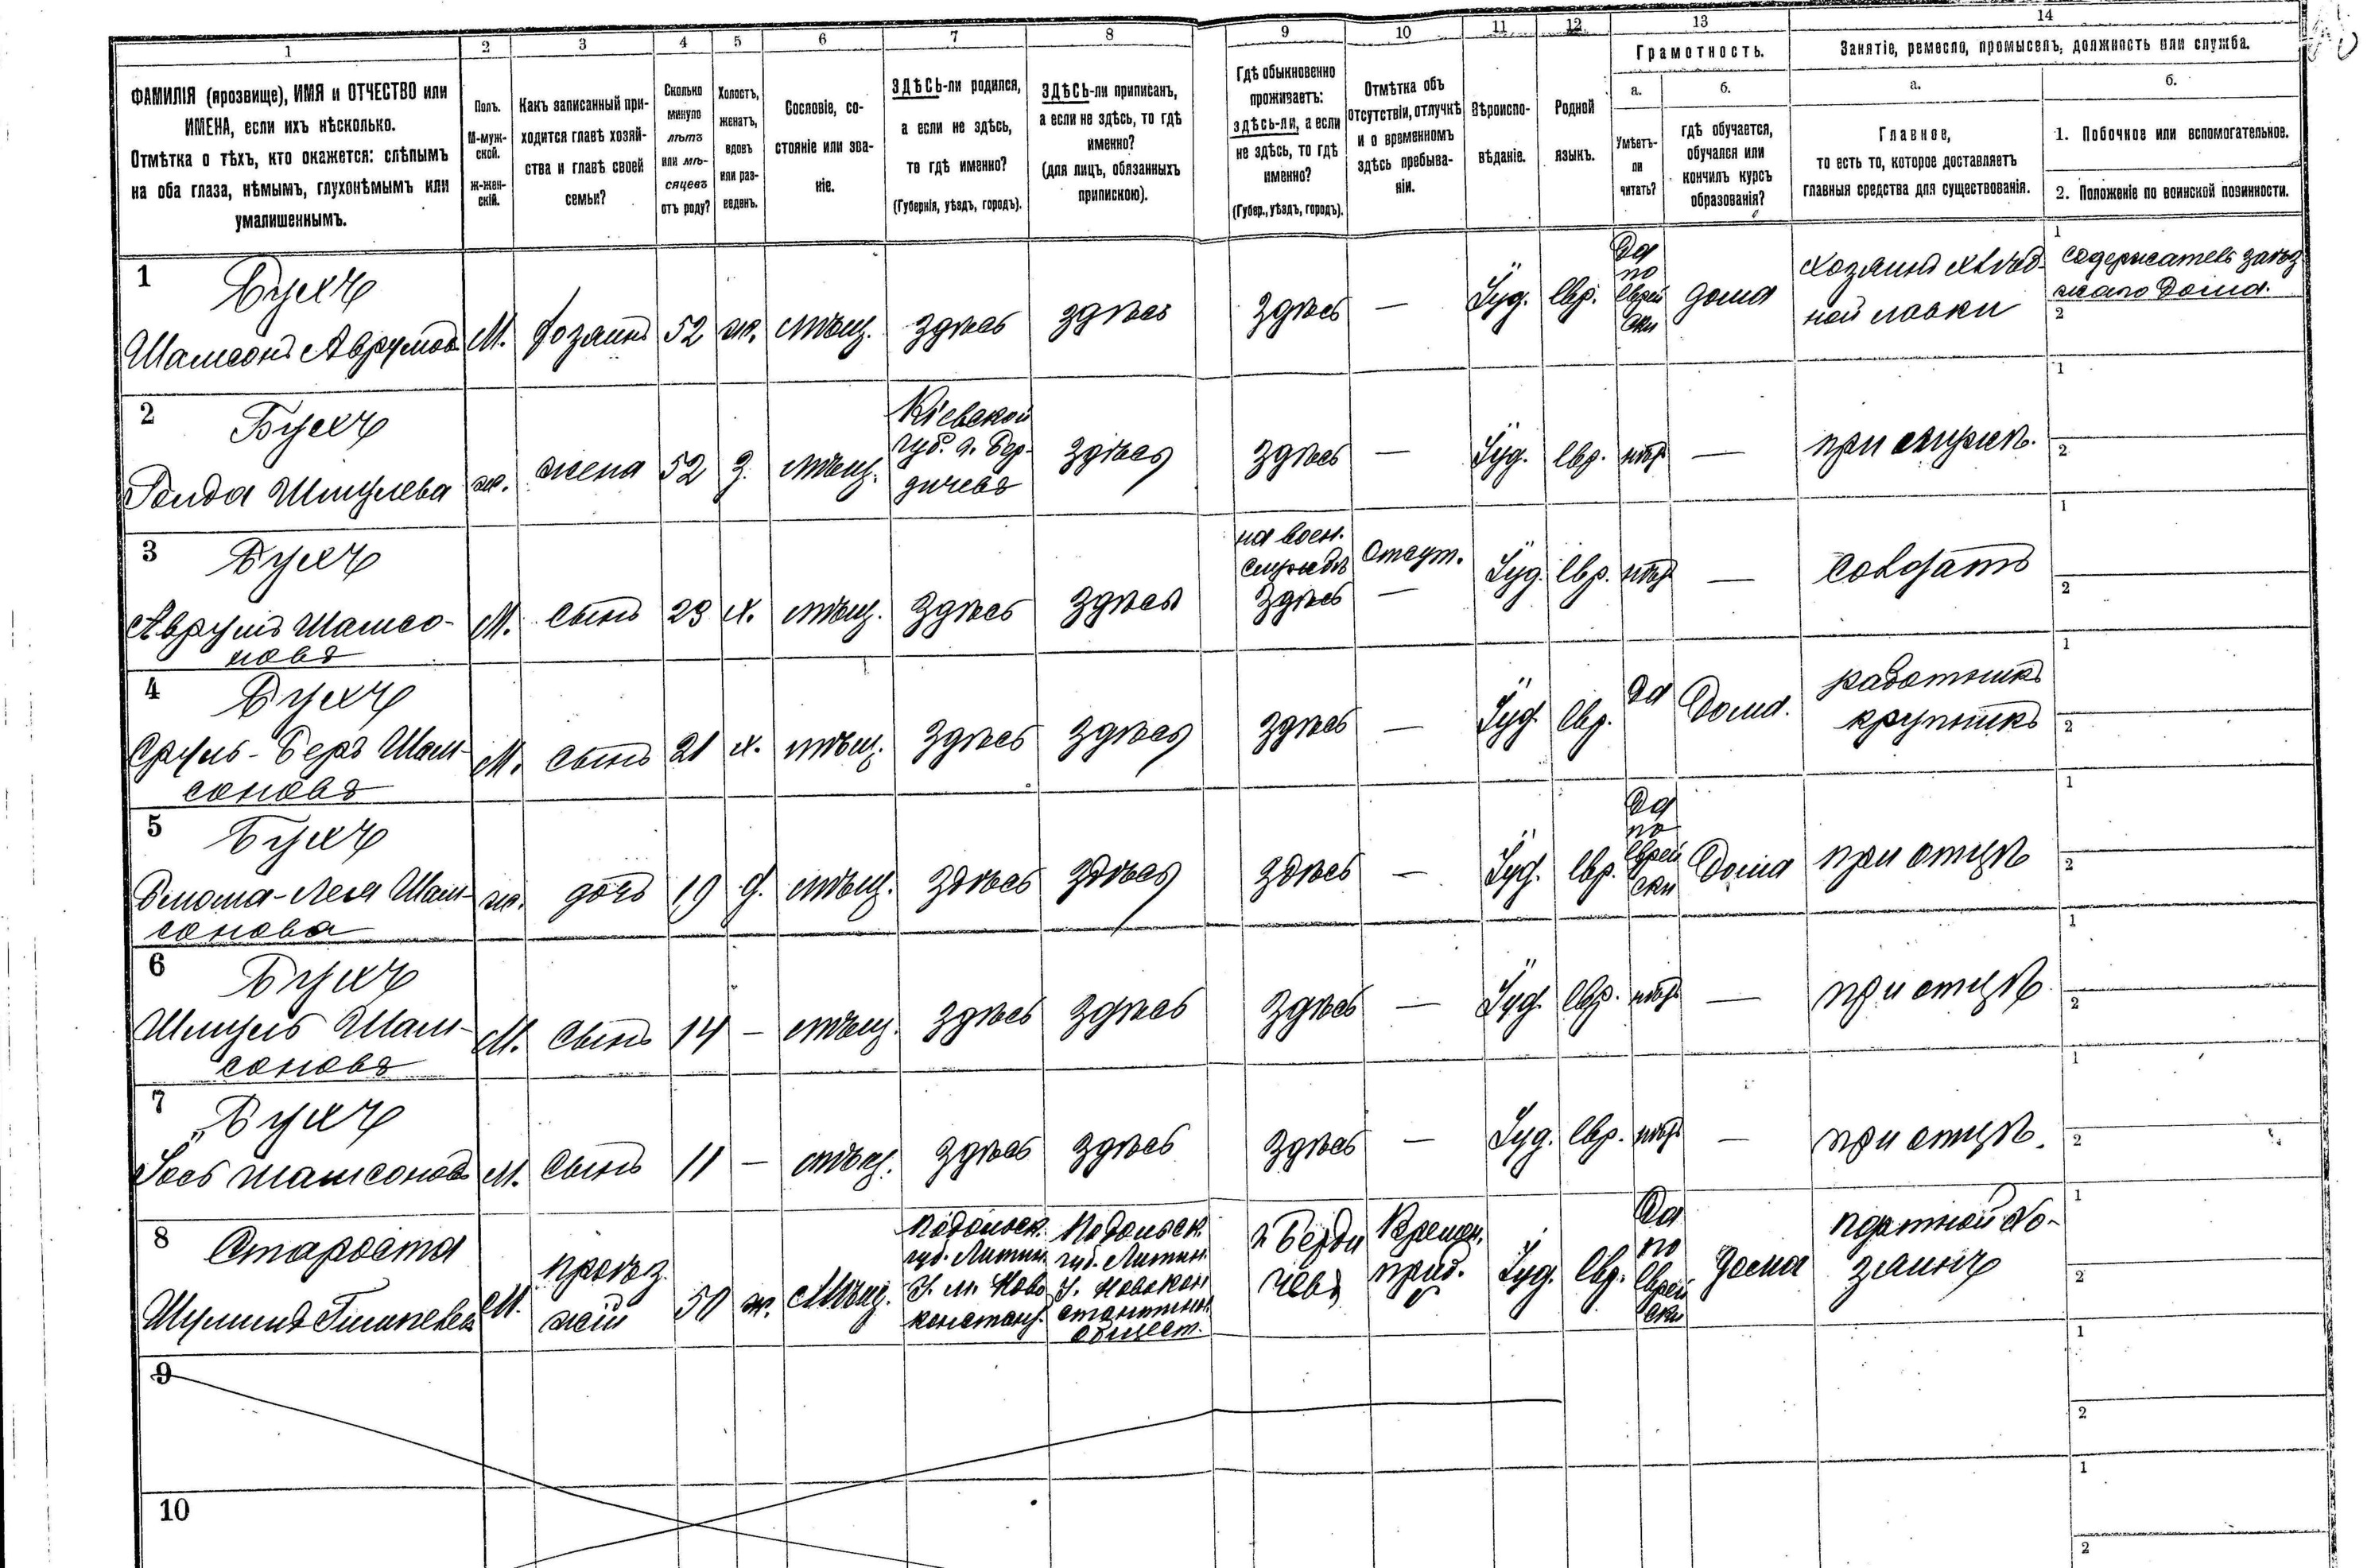 1 2 3 4 5 6 7 8 9 10 11 12 13 14
ФАМИЛІЯ (прозвище), ИМЯ и ОТЧЕСТВО или
ИМЕНА, если ихъ нѣсколько.
Отмѣтка о тѣхъ, кто окажется: слѣпымъ
на оба глаза, нѣмымъ, глухонѣмымъ или
умалишеннымъ.
Полъ.
М-муж-
ской.
Ж-жен-
скій.
Какъ записанный при-
ходится главѣ хозяй-
ства и главѣ своей
семьи?
Сколько
минуло
лѣтъ
или мѣ-
сяцевъ
отъ роду?
Холостъ,
женатъ,
вдовъ
или раз-
веденъ.
Сословіе, со-
стояніе или зва-
ніе.
ЗДѢСЬ-ли родился,
а если не здѣсь,
то гдѣ именно?
(Губернія, уѣздъ, городъ).
ЗДѢСЬ-ли приписанъ,
а если не здѣсь, то гдѣ
именно?
(для лицъ, обязанныхъ
припискою).
Гдѣ обыкновенно
проживаетъ:
здѣсь-ли, а если
не здѣсь, то гдѣ
именно?
(Губер., уѣздъ, городъ).
Отмѣтка объ
отсутствіи, отлучкѣ
и о временномъ
здѣсь пребыва-
ніи.
Вѣроиспо-
вѣданіе.
Родной
языкъ.
Грамотность.
а.
Умѣетъ-
ли
читать?
б.
гдѣ обучается,
обучался или
кончилъ курсъ
образованія?
Занятіе, ремесло, промыселъ, должность или служба.
а.
Главное,
то есть то, которое доставляетъ
главныя средства для существованія.
б.
1. Побочное или вспомогательное.
2. Положеніе по воинской повинности.
1
Бухъ
Шамсонъ Аврумовъ
М.
Хозяинъ
52
ж.
мѣщ.
здѣсь
здѣсь
здѣсь
—
Іуд.
Евр.
Да
по
Еврей
ски
дома
Хозяинъ хлѣб-
ной лавки
1
Содержатель заѣз
жаго дома.
2
2
Бухъ
Шмулева
ж.
жена
52
З.
мѣщ.
Кіевской
губ. г. Бер-
дичевъ
здѣсь
здѣсь
—
Іуд.
Евр.
нѣтъ
—
при мужѣ.
1
2
3
Бухъ
Аврумъ Шамсо-
новъ
М.
Сынъ
23
х.
мѣщ.
здѣсь
здѣсь
на воен.
службѣ
здѣсь
Отсут.
—
Іуд.
Евр.
нѣтъ
—
Солдатъ
1
2
4
Бухъ
Сруль-Беръ Шам-
соновъ
М.
Сынъ
21
х.
мѣщ.
здѣсь
здѣсь
здѣсь
—
Іуд.
Евр.
да
Дома.
работникъ
крупникъ
1
2
5
Бухъ
Шам-
сонова
ж.
дочь
19
д.
мѣщ.
здѣсь
здѣсь
здѣсь
—
Іуд.
Евр.
Да
по
Еврей
ски
Дома
при отцѣ
1
2
6
Бухъ
Шмуль Шам-
соновъ
М.
Сынъ
14
—
мѣщ.
здѣсь
здѣсь
здѣсь
—
Іуд.
Евр.
нѣтъ
—
при отцѣ
1
2
7
Бухъ
Іось Шамсоновъ
М.
Сынъ
11
—
мѣщ.
здѣсь
здѣсь
здѣсь
—
Іуд.
Евр.
нѣтъ
—
при отцѣ.
1
2
8
Староста
М.
проѣз
жій
50
ж.
Мѣщ.
Подольск.
губ. Литин.
У. м. Ново
констант.
Подольск.
губ. Литин.
У. Новокон
стантинов.
общест.
г. Берди
чевъ
Времен.
преб.
Іуд.
Евр.
Да
по
Еврей
ски
Дома
портной хо-
зяинъ
1
2
9
1
2
10
1
2